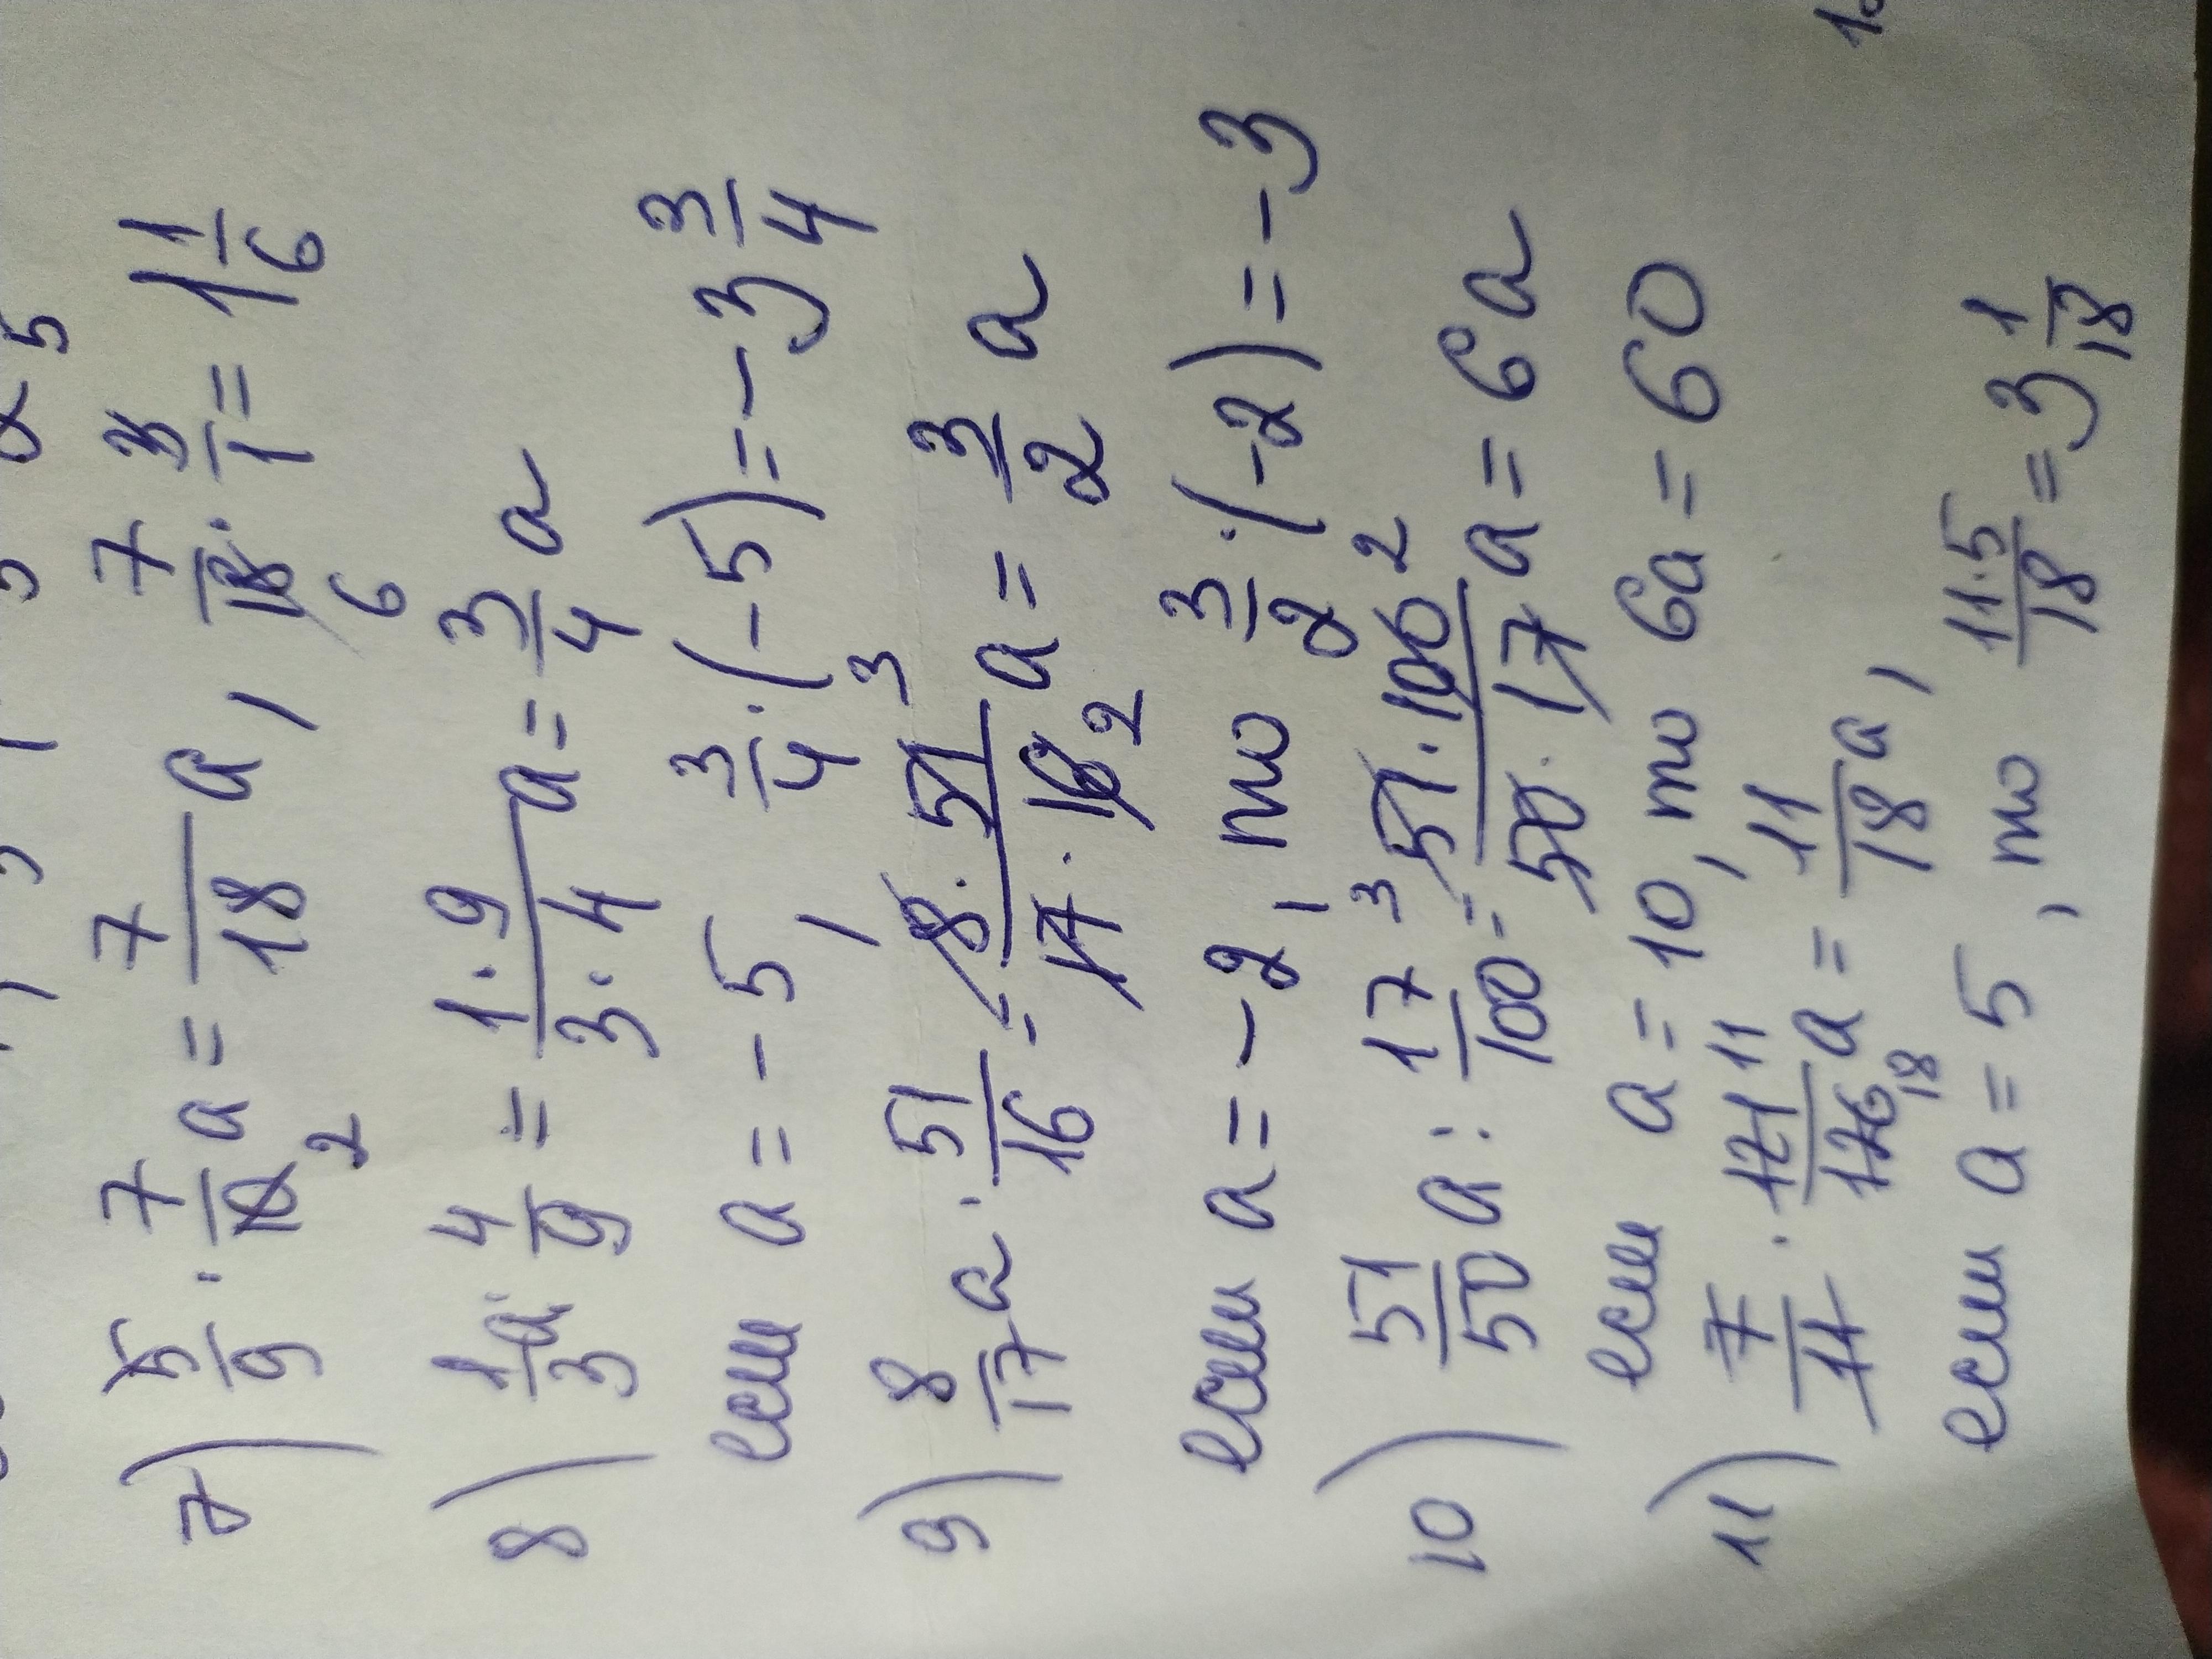 7) 5/9 · 7/10 a = 7/18 a, 7/18 · 3/1 = 1 1/6
2 6
8) 1/3 a : 4/9 = 1·9/3·4 a = 3/4 a
если a = -5, 3/4 · (-5) = -3 3/4
9) 8/17 a · 51/16 = 8·51/17·16 a = 3/2 a
3
2
если a = -2, то 3/2 · (-2) = -3
10) 51/50 a : 17/100 = 51·100/50·17 a = 6a
3 2
если a = 10, то 6a = 60
11) 7/11 · 121/126 a = 11/18 a,
11
18
если a = 5, то 11·5/18 = 3 1/18